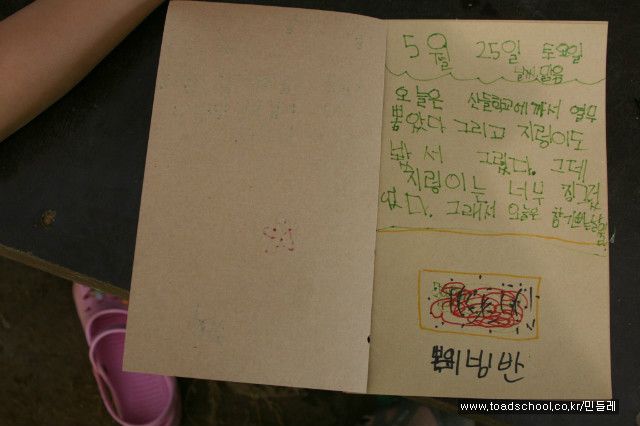 5월 25일 토요일
날씨 맑음
오늘은 산들학교에 가서 열무
뽑았다 그리고 지렁이도
봤 서 그렸다. 그데
지렁이는 너무 징그럽
었다. 그래서 오늘은
비빙반
www.toadschool.co.kr/민들레